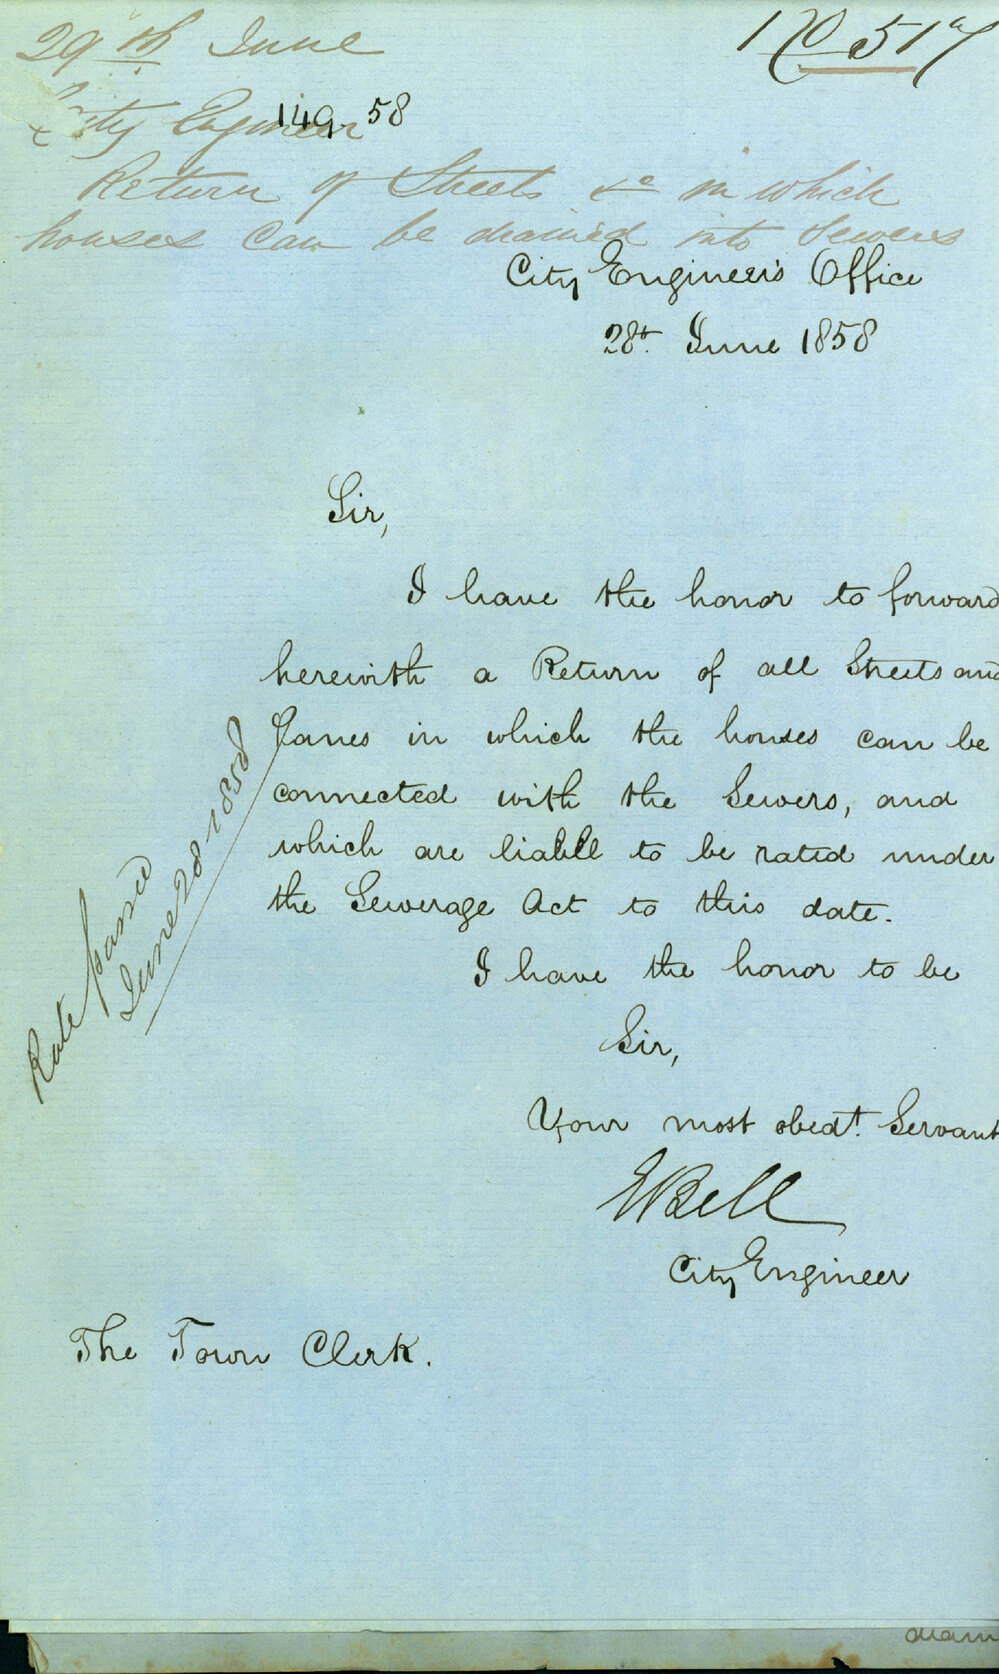 29th June
No 517
City Engineer
149. 58
Return of Streets &c in which
houses can be drained into Sewers
City Engineer's Office
28t. June 1858
Sir,
I have the honor to forward
herewith a Return of all Streets and
Lanes in which the houses can be
connected with the Sewers, and
which are liable to be rated under
the Sewerage Act to this date.
I have the honor to be
Sir,
Your most obedt. Servant
EBell
City Engineer
The Town Clerk.
Rate passed
June 28 1858